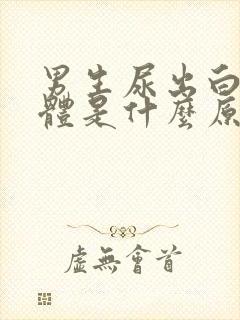 男生尿出白
體是什麼原
虛無會首